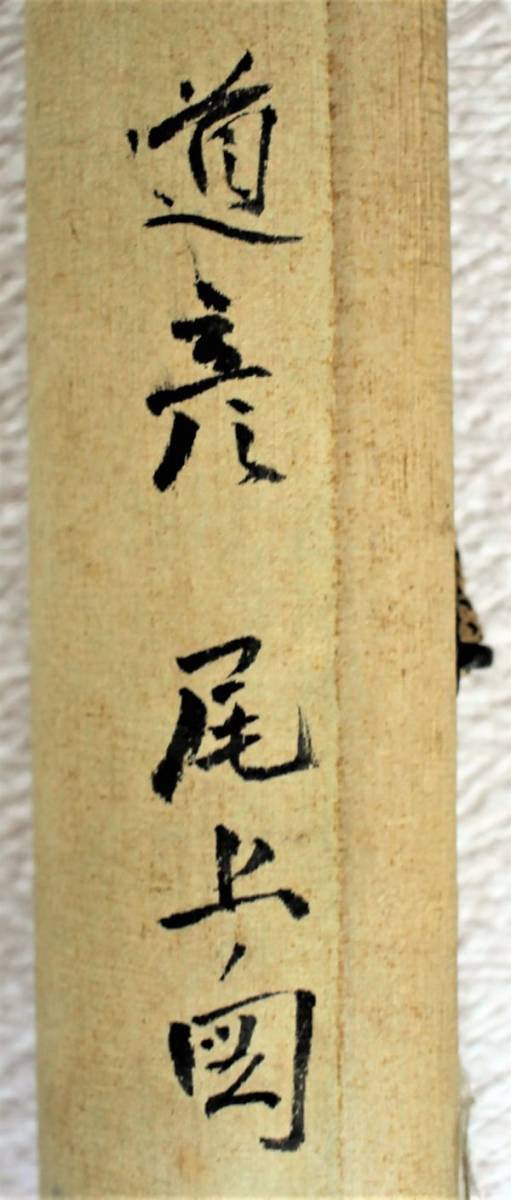 道彦 尾上ノ図